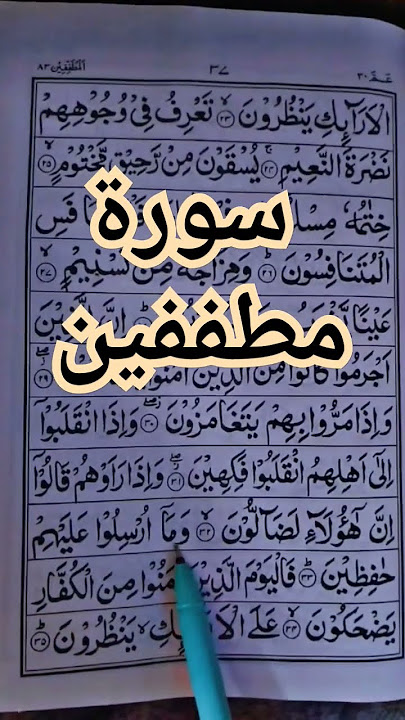 عَمَّ ٣٠ ٣٧ اَلْمُطَفِّفِيْن ٨٣
الْاَرَآئِكِ يَنْظُرُوْنَ ۙ ٢٣ تَعْرِفُ فِيْ وُجُوْهِهِمْ
نَضْرَةَ النَّعِيْمِ ۚ ٢٤ يُسْقَوْنَ مِنْ رَّحِيْقٍ مَّخْتُوْمٍ ۙ ٢٥
خِتٰمُهٗ فَسِ
سورة
الْمُتَنَافِسُوْنَ ٢٦ وَمِزَاجُهٗ مِنْ تَسْنِيْمٍ ۙ ٢٧
عَيْنًا
مطففين
اَجْرَمُوْا كَانُوْا مِنَ الَّذِيْنَ اٰمَنُوْا ٢٩
وَاِذَا مَرُّوْا بِهِمْ يَتَغَامَزُوْنَ ۖ ٣٠ وَاِذَا انْقَلَبُوْٓا
اِلٰٓى اَهْلِهِمُ انْقَلَبُوْا فَكِهِيْنَ ۖ ٣١ وَاِذَا رَاَوْهُمْ قَالُوْٓا
اِنَّ هٰٓؤُلَآءِ لَضَآلُّوْنَ ۙ ٣٢ وَمَآ اُرْسِلُوْا عَلَيْهِمْ
حٰفِظِيْنَ ۗ ٣٣ فَالْيَوْمَ الَّذِيْنَ اٰمَنُوْا مِنَ الْكُفَّارِ
يَضْحَكُوْنَ ۙ ٣٤ عَلَى الْاَرَآئِكِ ۙ يَنْظُرُوْنَ ۗ ٣٥